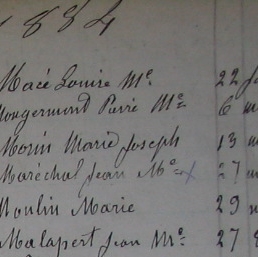 1884
Macé Louise Me 22 j
Mongermont Pierre Me 6 m
Morin Marie Joseph 13 m
Maréchal Jean Me x 27 m
Moulin Marie 29 n
Malapert Jean Me 27 8